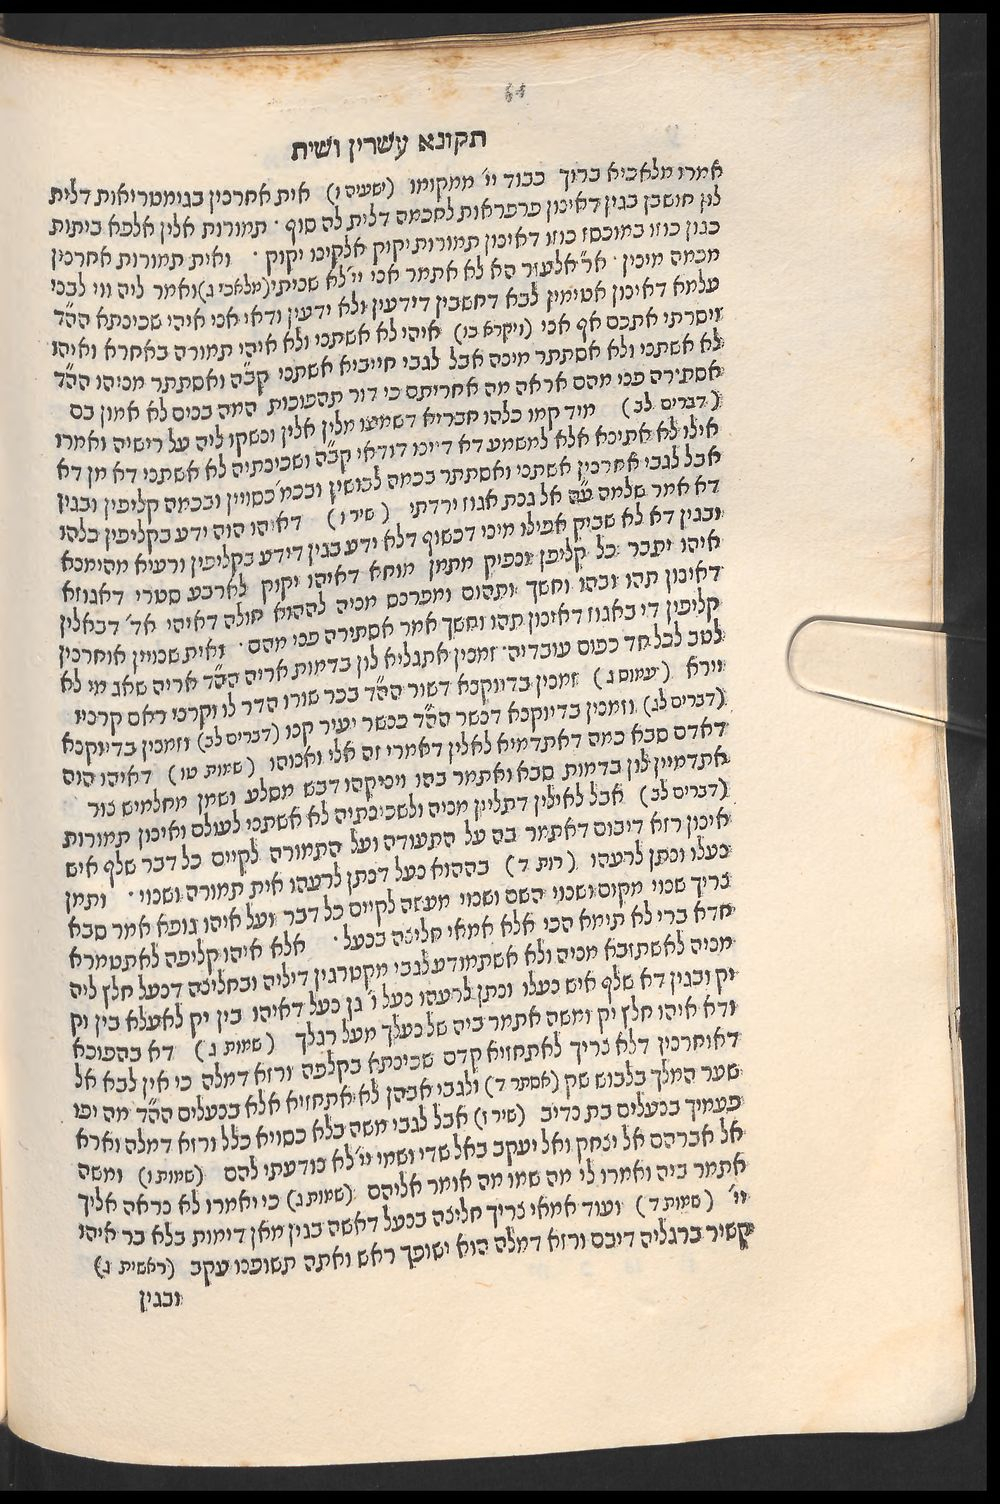 64
תקונא עשרין ושית
אמרו מלאכיא ברוך כבוד יי׳ ממקומו (ישעיה ו) אית אחרנין בגימטריאות דלית
לון חושבן בגין דאינון פרפראות לחכמה דלית לה סוף · תמורות אלין אלפא ביתות
כגון כוזו במוכסז כוזו דאינון תמורות יקוק אלקינו יקוק · ואית תמורות אחרנין
מכמה מינין · א״ר אלעזר הא לא אתמר אני יי׳ לא שניתי (מלאכי ג) ואמר ליה ווי לבני
עלמא דאינון אטימין לבא דחשבין דידעין ולא ידעין ודאי אני איהי שכינתא הה״ד
ויסרתי אתכם אף אני (ויקרא כו) איהי לא אשתני ולא איהי תמורה באחרא ואיהו
לא אשתני ולא אסתתר מינה אבל לגבי חייביא אשתני קב״ה ואסתתר מניהו הה״ד
אסתירה פני מהם אראה מה אחריתם כי דור תהפוכות המה בנים לא אמון בם
(דברים לב) מיד קמו כלהו חברייא דשמעו מלין אלין ונשקו ליה על רישיה ואמרו
אילו לא אתינא אלא למשמע דא דיינו דודאי קב״ה ושכינתיה לא אשתני דא מן דא
אבל לגבי אחרנין אשתני ואסתתר בכמה לבושין ובכמ׳ כסויין ובכמה קליפין ובגין
דא אמר שלמה ע״ה אל גנת אגוז ירדתי (שיר ו) דאיהו הוה ידע בקליפין כלהו
ובגין דא לא שביק אפילו מיני דכשוף דלא ידע בגין דידע בקליפין ורעיא מהימנא
איהו יתבר כל קליפין ונפיק מתמן מוחא דאיהו יקוק לארבע סטרי דאגוזא
דאינון תהו ובהו וחשך ותהום ומפרנס מניה לההוא חולה דאיהי אד׳ דבאלין
קליפין די באגוז דאינון תהו וחשך אמר אסתירה פני מהם · ואית שנויין אוחרנין
לטב לכל חד כפום עובדיה זמנין אתגליא לון בדמות אריה הה״ד אריה שאג מי לא
יירא (עמוס ג) זמנין בדיוקנא דשור הה״ד בכר שורו הדר לו וקרני ראם קרניו
(דברים לג) וזמנין בדיוקנא דנשר הה״ד כנשר יעיר קנו (דברים לב) וזמנין בדיוקנא
דאדם סבא כמה דאתדמיא לאלין דאמרי זה אלי ואנוהו (שמות טו) דאיהו הוה
אתדמיין לון בדמות סבא ואתמר בהו ויניקהו דבש מסלע ושמן מחלמיש צור
(דברים לב) אבל לאילין דתליין מניה ולשכינתיה לא אשתני לעולם ואינון תמורות
אינון רזא דיבום דאתמר בה על התעודה ועל התמורה לקיים כל דבר שלף איש
נעלו ונתן לרעהו (רות ד) בההוא נעל דנתן לרעהו אית תמורה ושנוי · ותמן
צריך שנוי מקום ושנוי השם ושנוי מעשה לקיים כל דבר ועל איהו גופא אמר סבא
חדא ברי לא תימא הכי אלא אמאי חליצה בנעל · אלא איהו קליפה לאתטמרא
מניה לאשתזבא מניה ולא אשתמודע לגבי מקטרגין דיליה ובחליצה דנעל חלץ ליה
יק ובגין דא שלף איש נעלו ונתן לרעהו נעל ו׳ גן נעל דאיהו בין יק לאעלא בין וק
ודא איהו חלץ יק ומשה אתמר ביה של נעלך מעל רגלך (שמות ג) דא בהפוכא
דאוחרנין דלא צריך לאתחזיא קדם שכינתא בקלפה ורזא דמלה כי אין לבא אל
שער המלך בלבוש שק (אסתר ד) ולגבי אבהן לא אתחזיא אלא בנעלים הה״ד מה יפו
פעמיך בנעלים בת נדיב (שיר ז) אבל לגבי משה בלא כסויא כלל ורזא דמלה וארא
אל אברהם אל יצחק ואל יעקב באל שדי ושמי יי׳ לא נודעתי להם (שמות ו) ומשה
אתמר ביה ואמרו לי מה שמו מה אומר אליהם (שמות ג) כי יאמרו לא נראה אליך
יי׳ (שמות ד) ועוד אמאי צריך חליצה בנעל דאשה בגין מאן דימות בלא בר איהו
קשיר ברגליה דיבם ורזא דמלה הוא ישופך ראש ואתה תשופנו עקב (ראשית ג)
ובגין